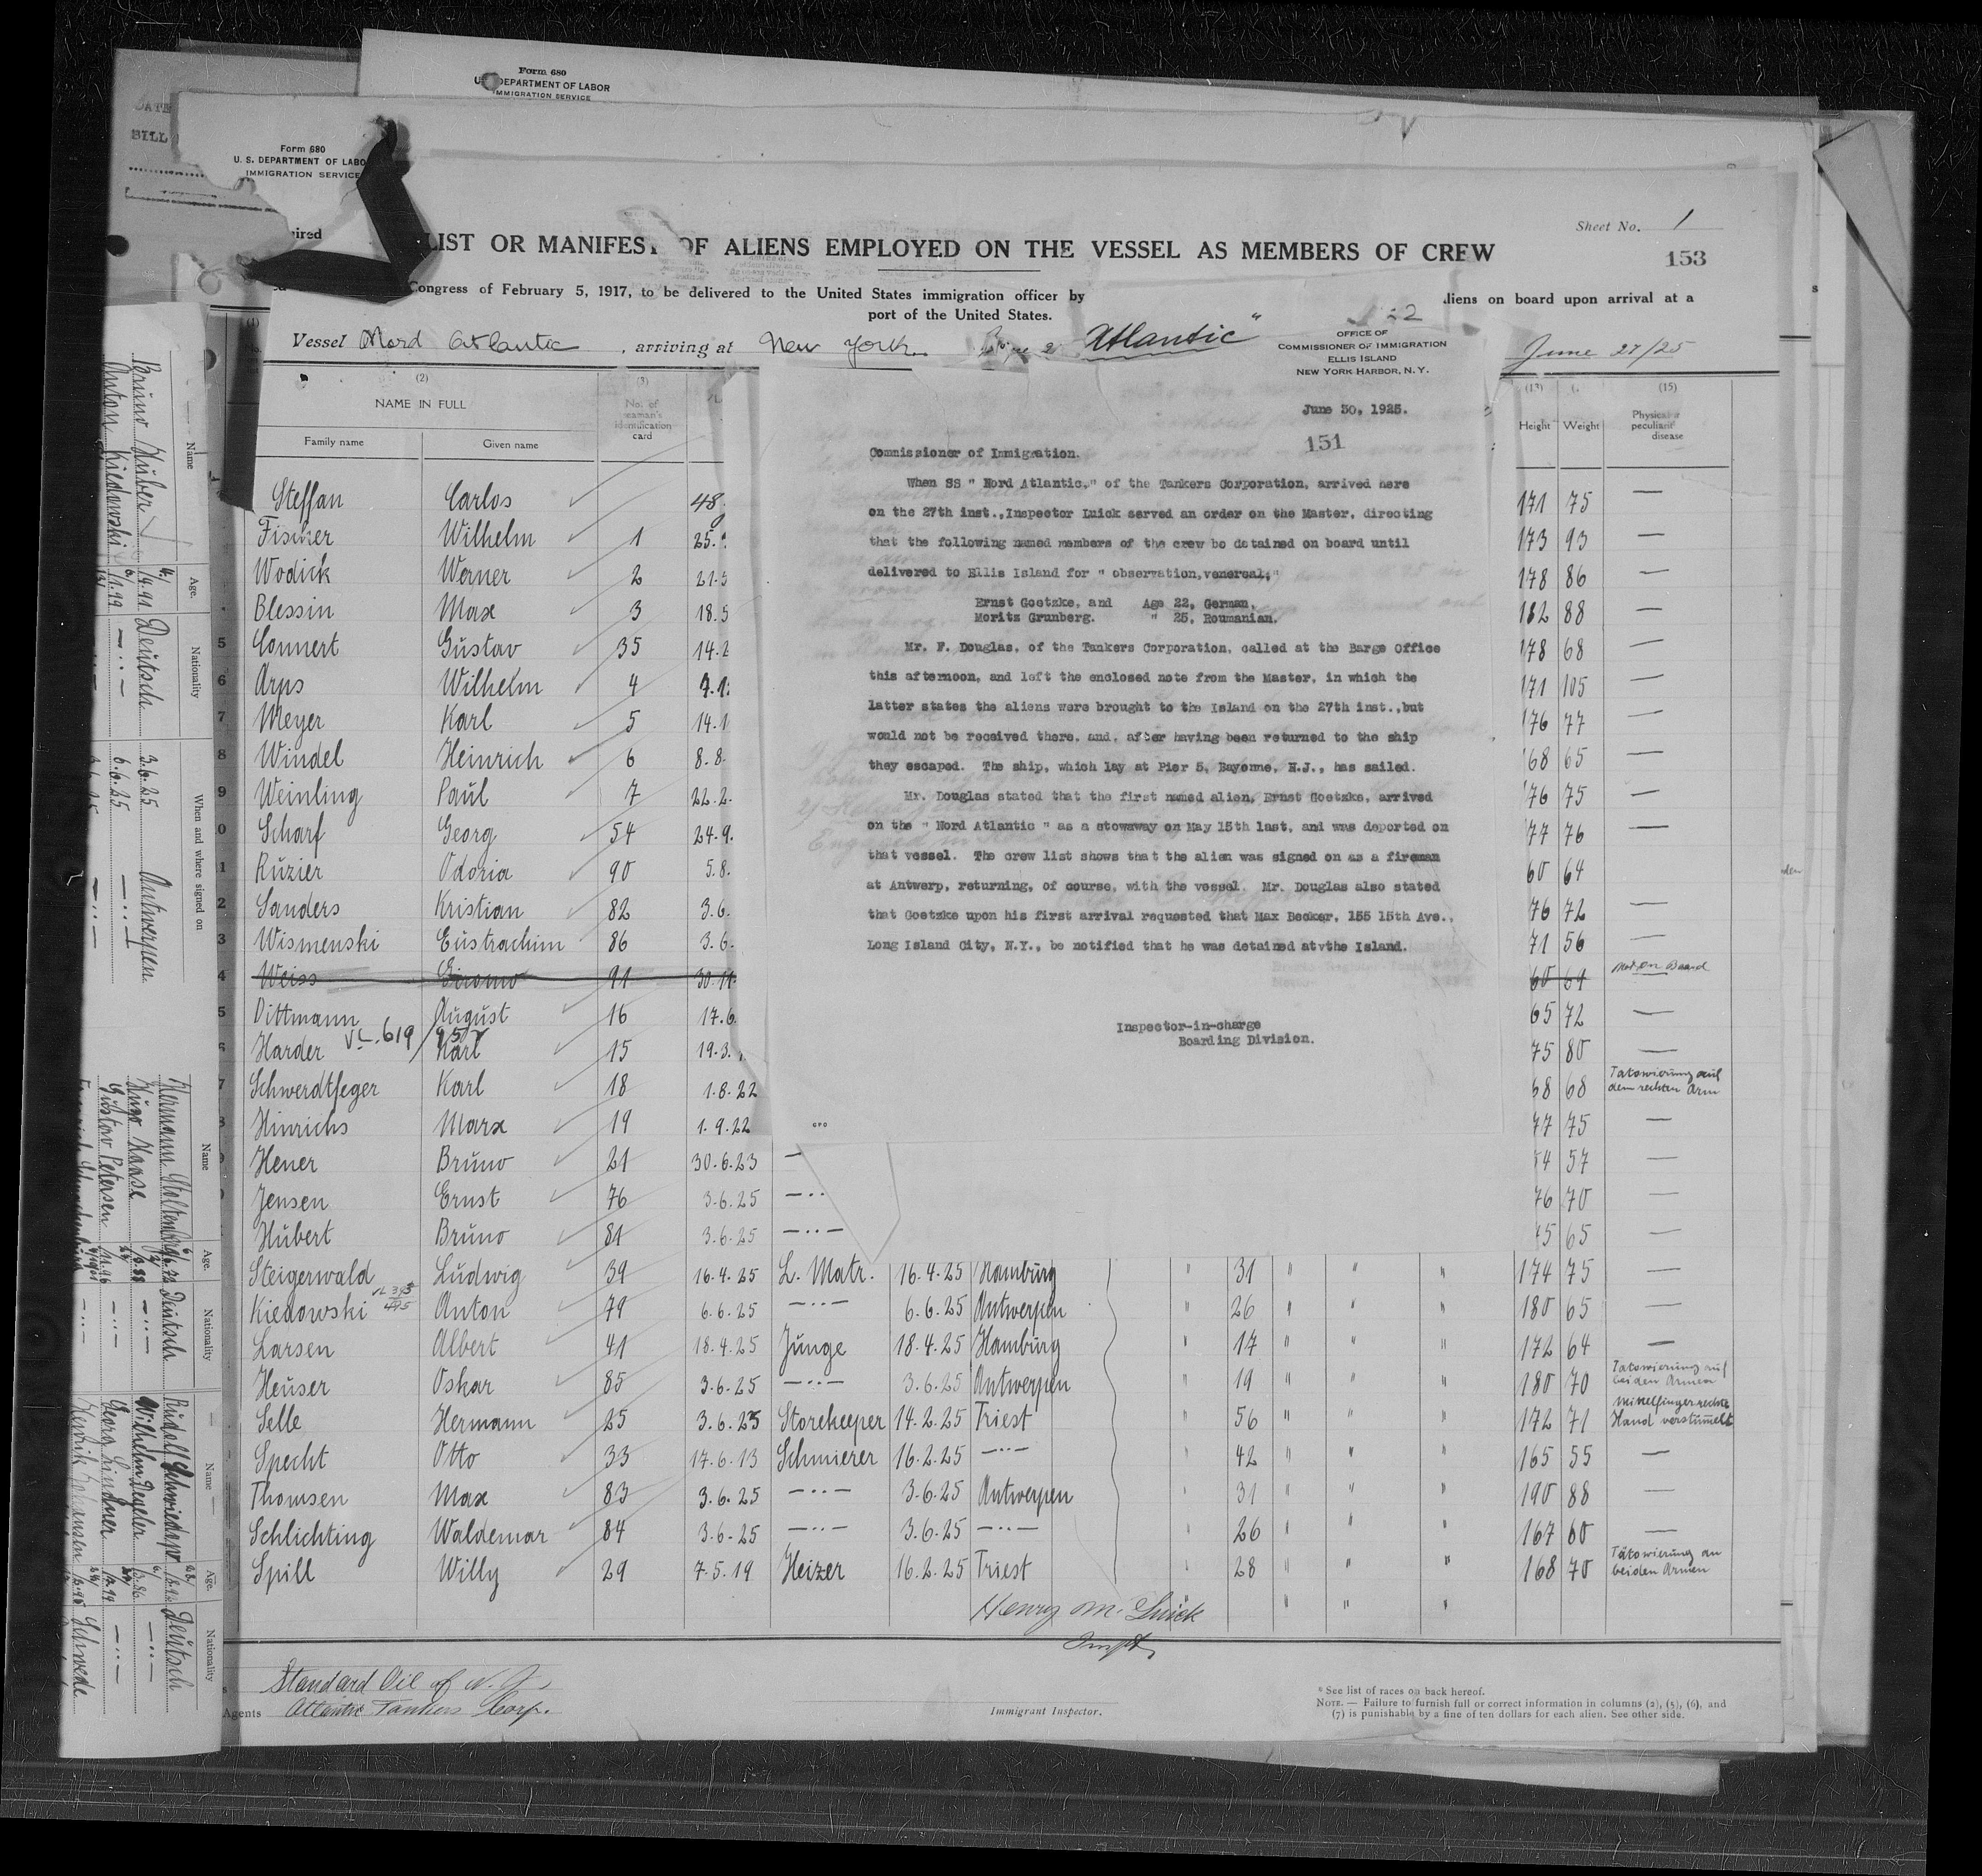 Form 680
U.S. DEPARTMENT OF LABOR
IMMIGRATION SERVICE
DATE
BILL
Form 680
U. S. DEPARTMENT OF LABO
IMMIGRATION SERVICE
Sheet No. 1
LIST OR MANIFEST OF ALIENS EMPLOYED ON THE VESSEL AS MEMBERS OF CREW
153
Congress of February 5, 1917, to be delivered to the United States immigration officer by
liens on board upon arrival at a
port of the United States.
Vessel Nord Atlantic, arriving at New York
Atlantic"
June 27/25
OFFICE OF
COMMISSIONER OF IMMIGRATION
ELLIS ISLAND
NEW YORK HARBOR, N. Y.
June 30, 1925.
151
Commissioner of Immigration.
When SS " Nord Atlantic," of the Tankers Corporation, arrived here
on the 27th inst., Inspector Luick served an order on the Master, directing
that the following named members of the crew be detained on board until
delivered to Ellis Island for " observation, venereal;"
Ernst Goetzke, and Age 22, German,
Moritz Grunberg. " 25, Roumanian.
Mr. F. Douglas, of the Tankers Corporation, called at the Barge Office
this afternoon, and left the enclosed note from the Master, in which the
latter states the aliens were brought to the Island on the 27th inst., but
would not be received there, and, after having been returned to the ship
they escaped. The ship, which lay at Pier 5, Bayonne, N.J., has sailed.
Mr. Douglas stated that the first named alien, Ernst Goetzke, arrived
on the " Nord Atlantic " as a stowaway on May 15th last, and was deported on
that vessel. The crew list shows that the alien was signed on as a fireman
at Antwerp, returning, of course, with the vessel. Mr. Douglas also stated
that Goetzke upon his first arrival requested that Max Becker, 155 15th Ave.,
Long Island City, N.Y., be notified that he was detained atvthe Island.
Inspector-in-charge
Boarding Division.
GPO
(2) (3) (13) (15)
NAME IN FULL
Family name Given name
No. of seaman's identification card
Height Weight
Steffan Carlos 48. 171 75 —
Fischer Wilhelm 1 25. 173 93 —
Wodick Werner 2 21.5 178 86 —
Blessin Max 3 18.5 182 88 —
5 Connert Gustav 35 14.2 178 68 —
6 Arps Wilhelm 4 171 105 —
7 Meyer Karl 5 14.1 176 77 —
8 Windel Heinrich 6 8.8. 168 65 —
9 Weinling Paul 7 22.2. 76 75 —
0 Scharf Georg 54 24.9. 77 76 —
1 Ruzier Odoria 90 5.8. 60 64 —
2 Sanders Kristian 82 3.6. 76 72 —
3 Wismenski Eustrachim 86 3.6. 71 56 —
4 Weiss 91 30.11. 60 61 Not on Board
5 Dittmann August 16 17.6. 65 72 —
6 Harder Karl 15 19.3. 75 80 —
7 Schwerdtfeger Karl 18 1.8.22 68 68 Tatowierung auf dem rechten Arm
8 Hinrichs Marx 19 1.9.22 77 75 —
Hener Bruno 21 30.6.23 54 57 —
Jensen Ernst 76 3.6.25 76 70 —
Hubert Bruno 81 3.6.25 45 65 —
Steigerwald Ludwig 39 16.4.25 L. Matr. 16.4.25 Hamburg " 31 " " " 174 75 —
Kiedowski Anton 79 6.6.25 —··— 6.6.25 Antwerpen " 26 " " " 180 65 —
Larsen Albert 41 18.4.25 Junge 18.4.25 Hamburg " 17 " " " 172 64 —
Heuser Oskar 85 3.6.25 —··— 3.6.25 Antwerpen " 19 " " " 180 70 Tatowierung auf beiden Armen
Selle Hermann 25 3.6.25 Storekeeper 14.2.25 Triest " 56 " " " 172 71 Mittelfinger rechte Hand verstümmelt
Specht Otto 33 17.6.13 Schmierer 16.2.25 —··— " 42 " " " 165 55 —
Thomsen Max 83 3.6.25 —··— 3.6.25 Antwerpen " 31 " " " 190 88 —
Schlichting Waldemar 84 3.6.25 —··— 3.6.25 —··— " 26 " " " 167 60 —
Spill Willy 29 7.5.19 Heizer 16.2.25 Triest " 28 " " " 168 70 Tätowierung an beiden Armen
Henry M. Luick
Inspt.
Standard Oil of N. J.
Agents Atlantic Tankers Corp.
Immigrant Inspector.
* See list of races on back hereof.
NOTE. — Failure to furnish full or correct information in columns (2), (5), (6), and
(7) is punishable by a fine of ten dollars for each alien. See other side.
Name Age. Nationality When and where signed on
Bruno Huber Deutsch 3.6.25 Antwerpen
Anton Kiedowski —··— 6.6.25 —··—
Name Age. Nationality
Hermann Deutsch
Hugo Haase —··—
Gustav Petersen —··—
Name Age. Nationality
Rudolf Deutsch
Wilhelm Degeler —··—
Georg Lindner —··—
Henrik Johansen Schwede